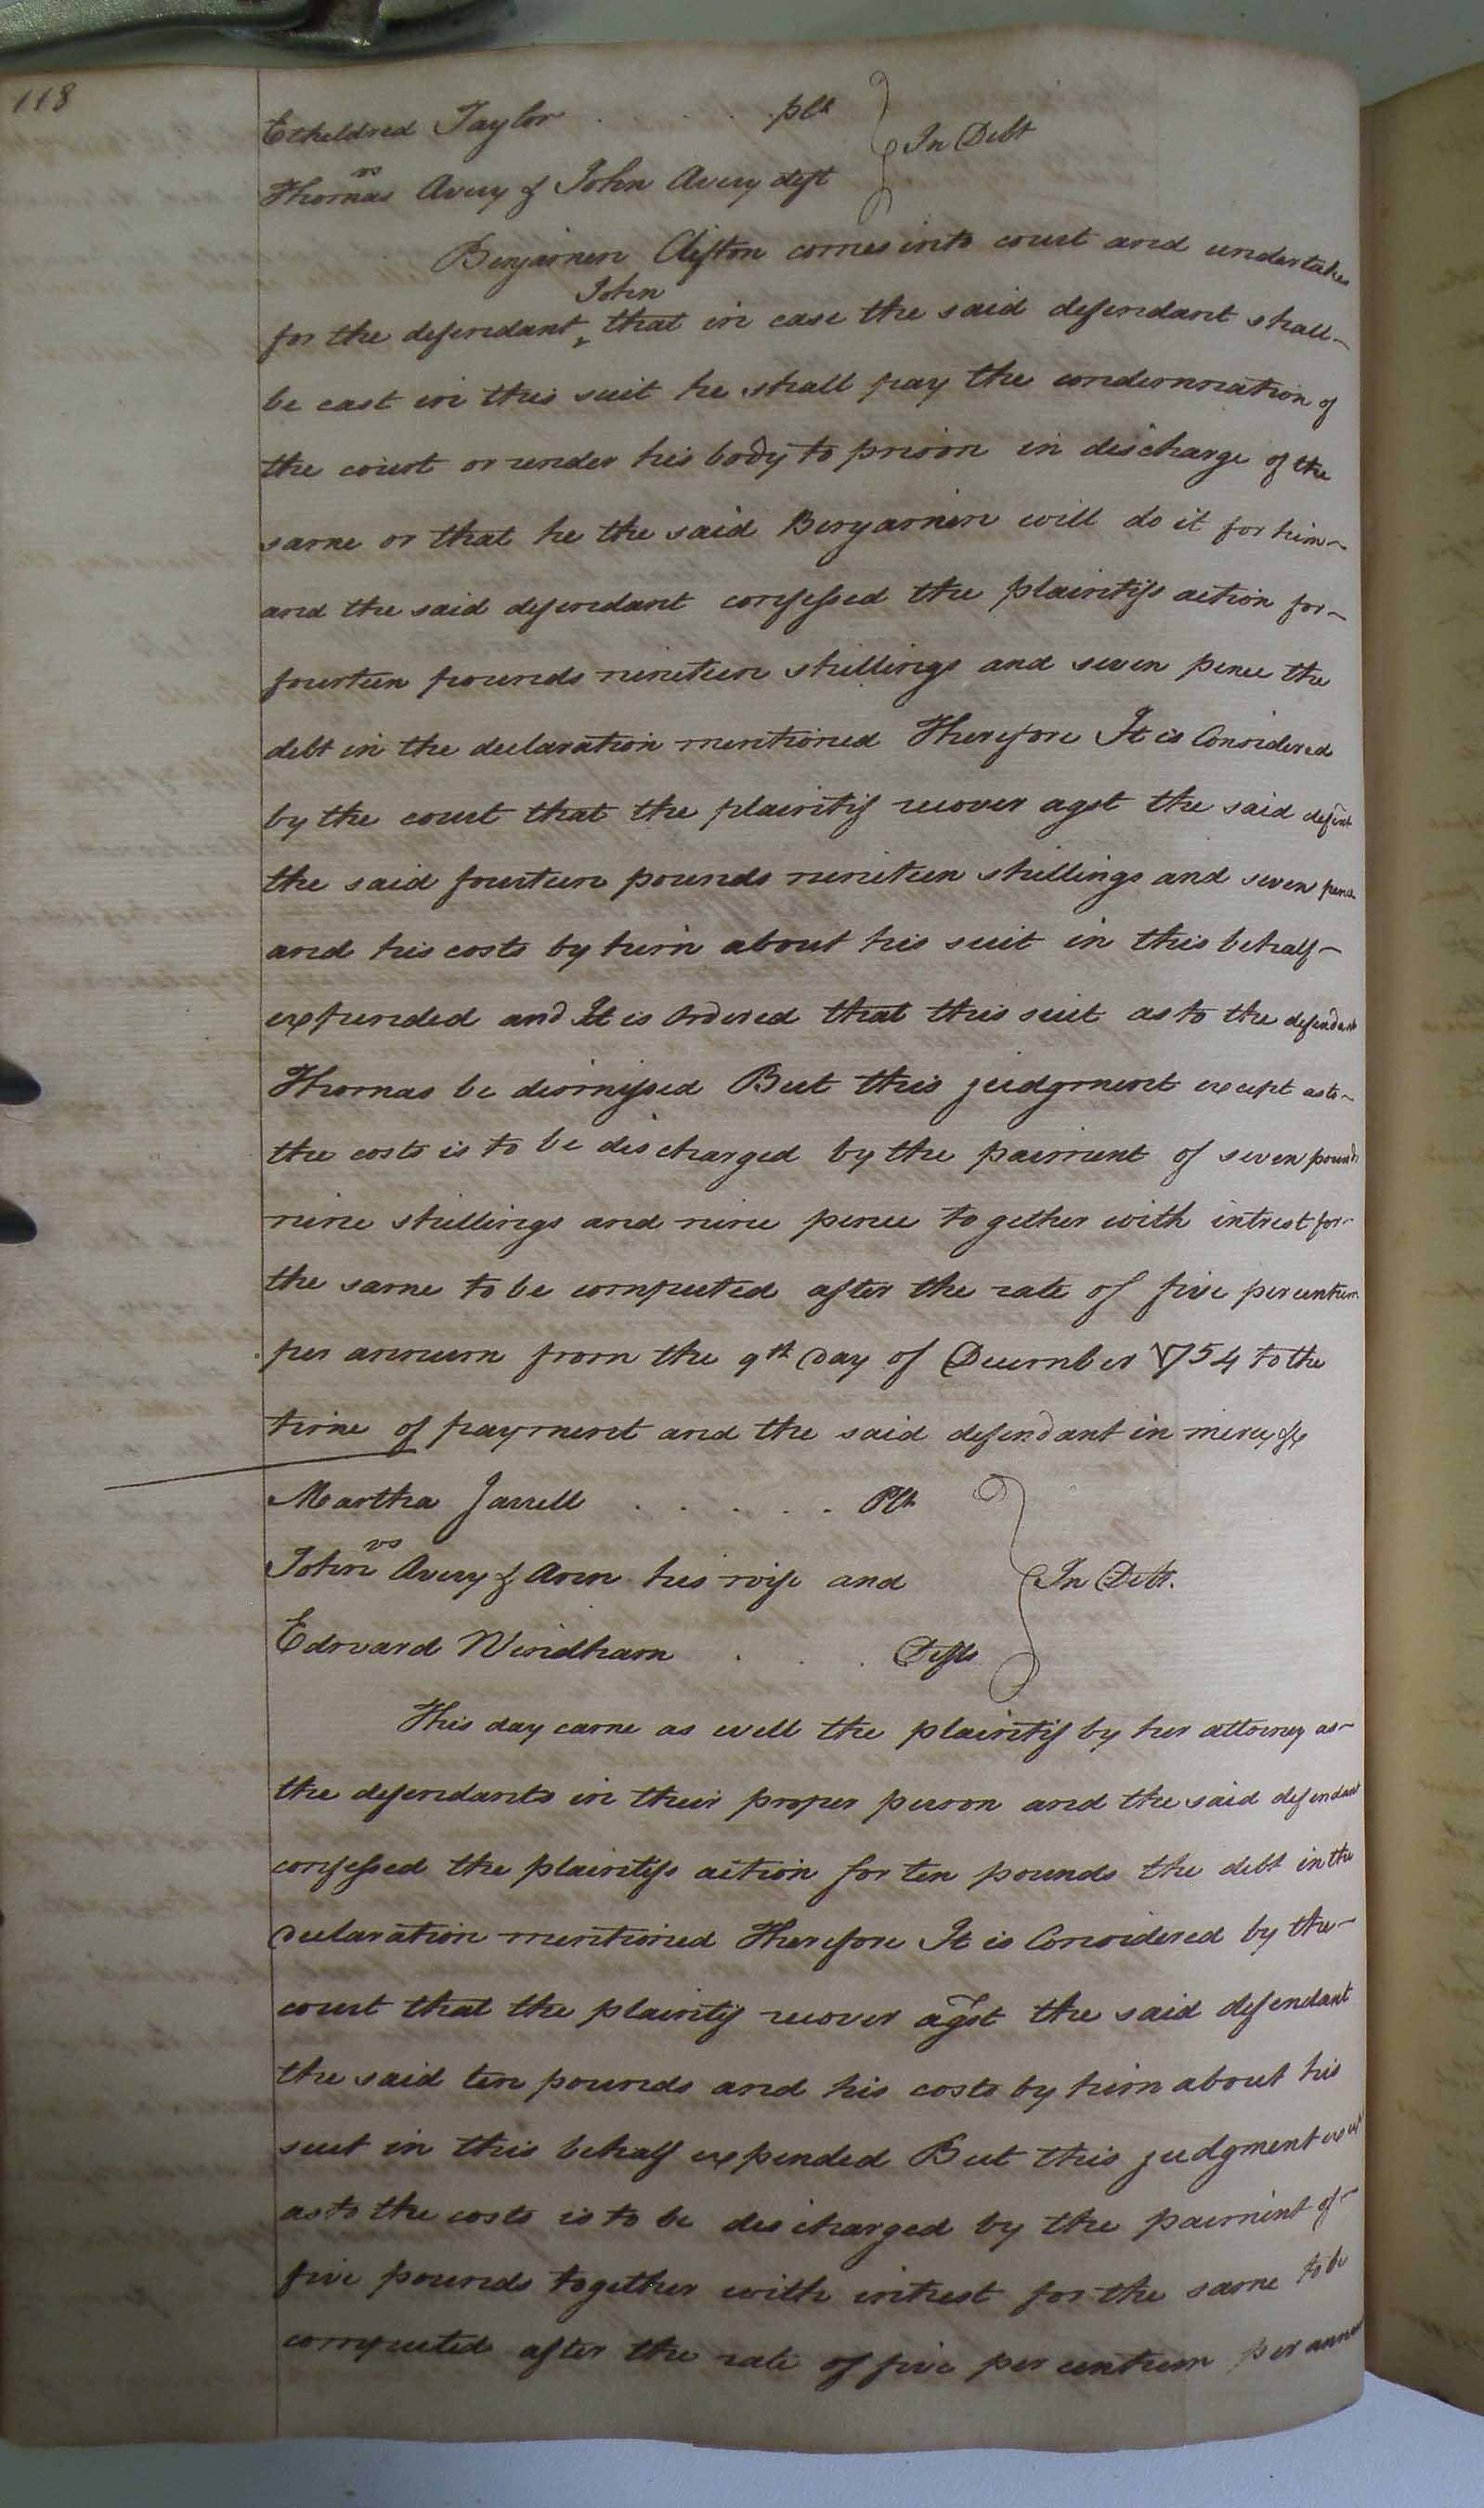 118
Etheldred Taylor . . . plt
vs
Thomas Avery & John Avery deft
In Debt
Benjamen Clifton comes into court and undertakes
John
for the defendant ‸ that in case the said defendant shall
be cast in this suit he shall pay the condemnation of
the court or render his body to prison in discharge of the
same or that he the said Benjamen will do it for him
and the said defendant confessed the plaintifs action for
fourteen pounds nineteen shillings and seven pence the
debt in the declaration mentioned Therefore It is Considered
by the court that the plaintif recover agst the said defent
the said fourteen pounds nineteen shillings and seven pence
and his costs by him about his suit in this behalf
expended and It is Ordered that this suit as to the defendant
Thomas be dismissed But this judgment except as to
the costs is to be discharged by the paiment of seven pounds
nine shillings and nine pence together with intrest for
the same to be computed after the rate of five per centum
per annum from the 9th day of December 1754 to the
time of payment and the said defendant in mercy &c
Martha Jarrell . . . . . Plt
vs
John Avery & Ann his wife and
In Debt.
Edward Windham . . . Defts
This day came as well the plaintif by her attorney as
the defendants in their proper person and the said defendant
confessed the plaintifs action for ten pounds the debt in the
declaration mentioned Therefore It is Considered by the
court that the plaintif recover agst the said defendant
the said ten pounds and his costs by him about his
suit in this behalf expended But this judgment
as to the costs is to be discharged by the paiment of
five pounds together with intrest for the same to be
computed after the rate of five per centum per annum